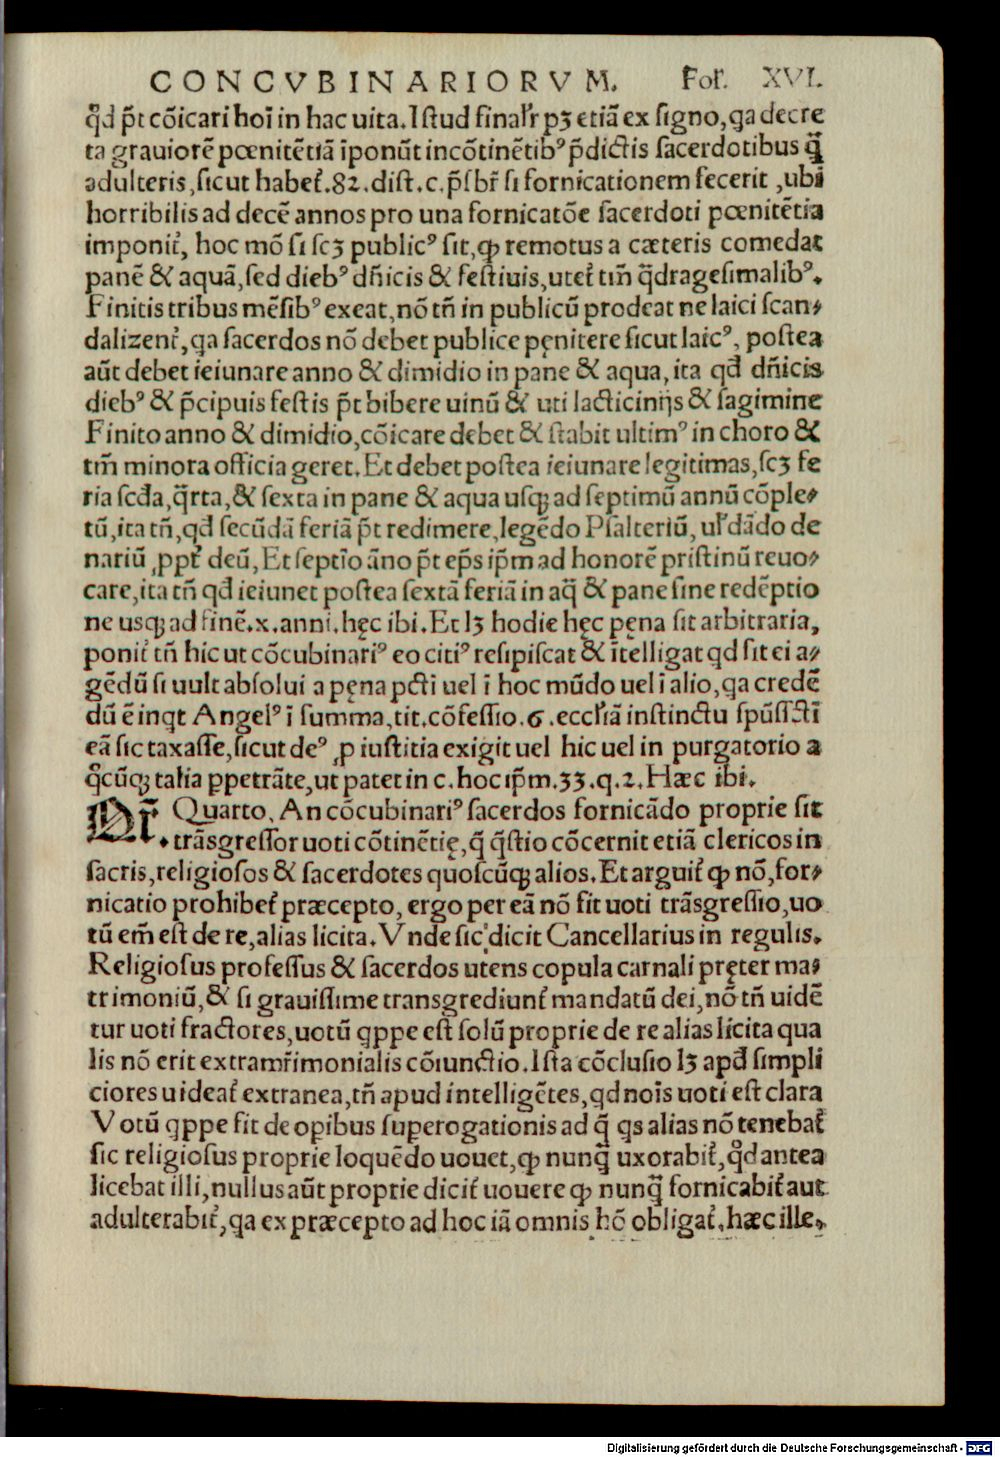 CONCVBINARIORVM. Fol'. XVI.
qd̉ pt̃ cõicari hoĩ in hac uita. Istud final'r pꝫ etiã ex signo, qa decre
ta grauiorẽ pœnitẽtiã ĩponũt incõtinẽtibꝰ p̃dictis sacerdotibus q̃
adulteris, sicut habet̃. 82. dist. c. p̃sbr̃ si fornicationem fecerit, ubi
horribilis ad decẽ annos pro una fornicatõe sacerdoti pœnitẽtia
imponit̃, hoc mõ si scꝫ publicꝰ sit, ꝙ remotus a cæteris comedat
panẽ & aquã, sed diebꝰ dñicis & festiuis, utet̃ tm̃ q̃dragesimalibꝰ.
Finitis tribus mẽsibꝰ exeat, nõ tñ in publicũ prodeat ne laici scan⸗
dalizent̃, qa sacerdos nõ debet publice pęnitere sicut laicꝰ, postea
aũt debet ieiunare anno & dimidio in pane & aqua, ita qđ dñicis
diebꝰ & p̃cipuis festis pt̃ bibere uinũ & uti lacticinijs & sagimine
Finito anno & dimidio, cõicare debet & stabit ultimꝰ in choro &
tm̃ minora officia geret. Et debet postea ieiunare legitimas, scꝫ fe
ria scđa, q̃rta, & sexta in pane & aqua usqꝫ ad septimũ annũ cõple⸗
tũ, ita tñ, qđ secũdã feriã pt̃ redimere, legẽdo Psalteriũ, ul' dãdo de
nariũ ꝓpt̃ deũ, Et septĩo ãno pt̃ ep̃s ip̃m ad honorẽ pristinũ reuo⸗
care, ita tñ qđ ieiunet postea sextã feriã in aq̃ & pane sine redẽptio
ne usqꝫ ad finẽ. x. anni. hęc ibi. Et lꝫ hodie hęc pęna sit arbitraria,
ponit̃ tñ hic ut cõcubinariꝰ eo citiꝰ resipiscat & ĩtelligat qd sit ei a⸗
gẽdũ si uult absolui a pęna pcti uel ĩ hoc mũdo uel ĩ alio, qa credẽ
dũ ẽ inqt Angelꝰ ĩ summa, tit. cõfessio. 6. eccl'iã instinctu spũssctĩ
eã sic taxasse, sicut deꝰ ꝓ iustitia exigit uel hic uel in purgatorio a
q̃cũqꝫ talia ꝑpetrãte, ut patet in c. hoc ip̃m. 33. q. 2. Hæc ibi.
Qr̃. Quarto, An cõcubinariꝰ sacerdos fornicãdo proprie sit
trãsgressor uoti cõtinẽtię, q̃ q̃stio cõcernit etiã clericos in
sacris, religiosos & sacerdotes quoscũqꝫ alios. Et arguit̃ ꝙ nõ, for⸗
nicatio prohibet̃ præcepto, ergo per eã nõ fit uoti trãsgressio, uo
tũ em̃ est de re, alias licita. Vnde sic dicit Cancellarius in regulis.
Religiosus professus & sacerdos utens copula carnali pręter ma⸗
trimoniũ, & si grauissime transgrediunt̃ mandatũ dei, nõ tñ uidẽ
tur uoti fractores, uotũ qppe est solũ proprie de re alias licita qua
lis nõ erit extramr̃imonialis cõiunctio. Ista cõclusio lꝫ apđ simpli
ciores uideat̃ extranea, tñ apud intelligẽtes, qd noĩs uoti est clara
Votũ qppe fit de opibus superogationis ad q̃ qs alias nõ tenebat̃
sic religiosus proprie loquẽdo uouet, ꝙ nunq̃ uxorabit̃, qd̉ antea
licebat illi, nullus aũt proprie dicit̃ uouere ꝙ nunq̃ fornicabit̃ aut
adulterabit̃, qa ex præcepto ad hoc iã omnis hõ obligat̃. hæc ille.
Digitalisierung gefördert durch die Deutsche Forschungsgemeinschaft - DFG